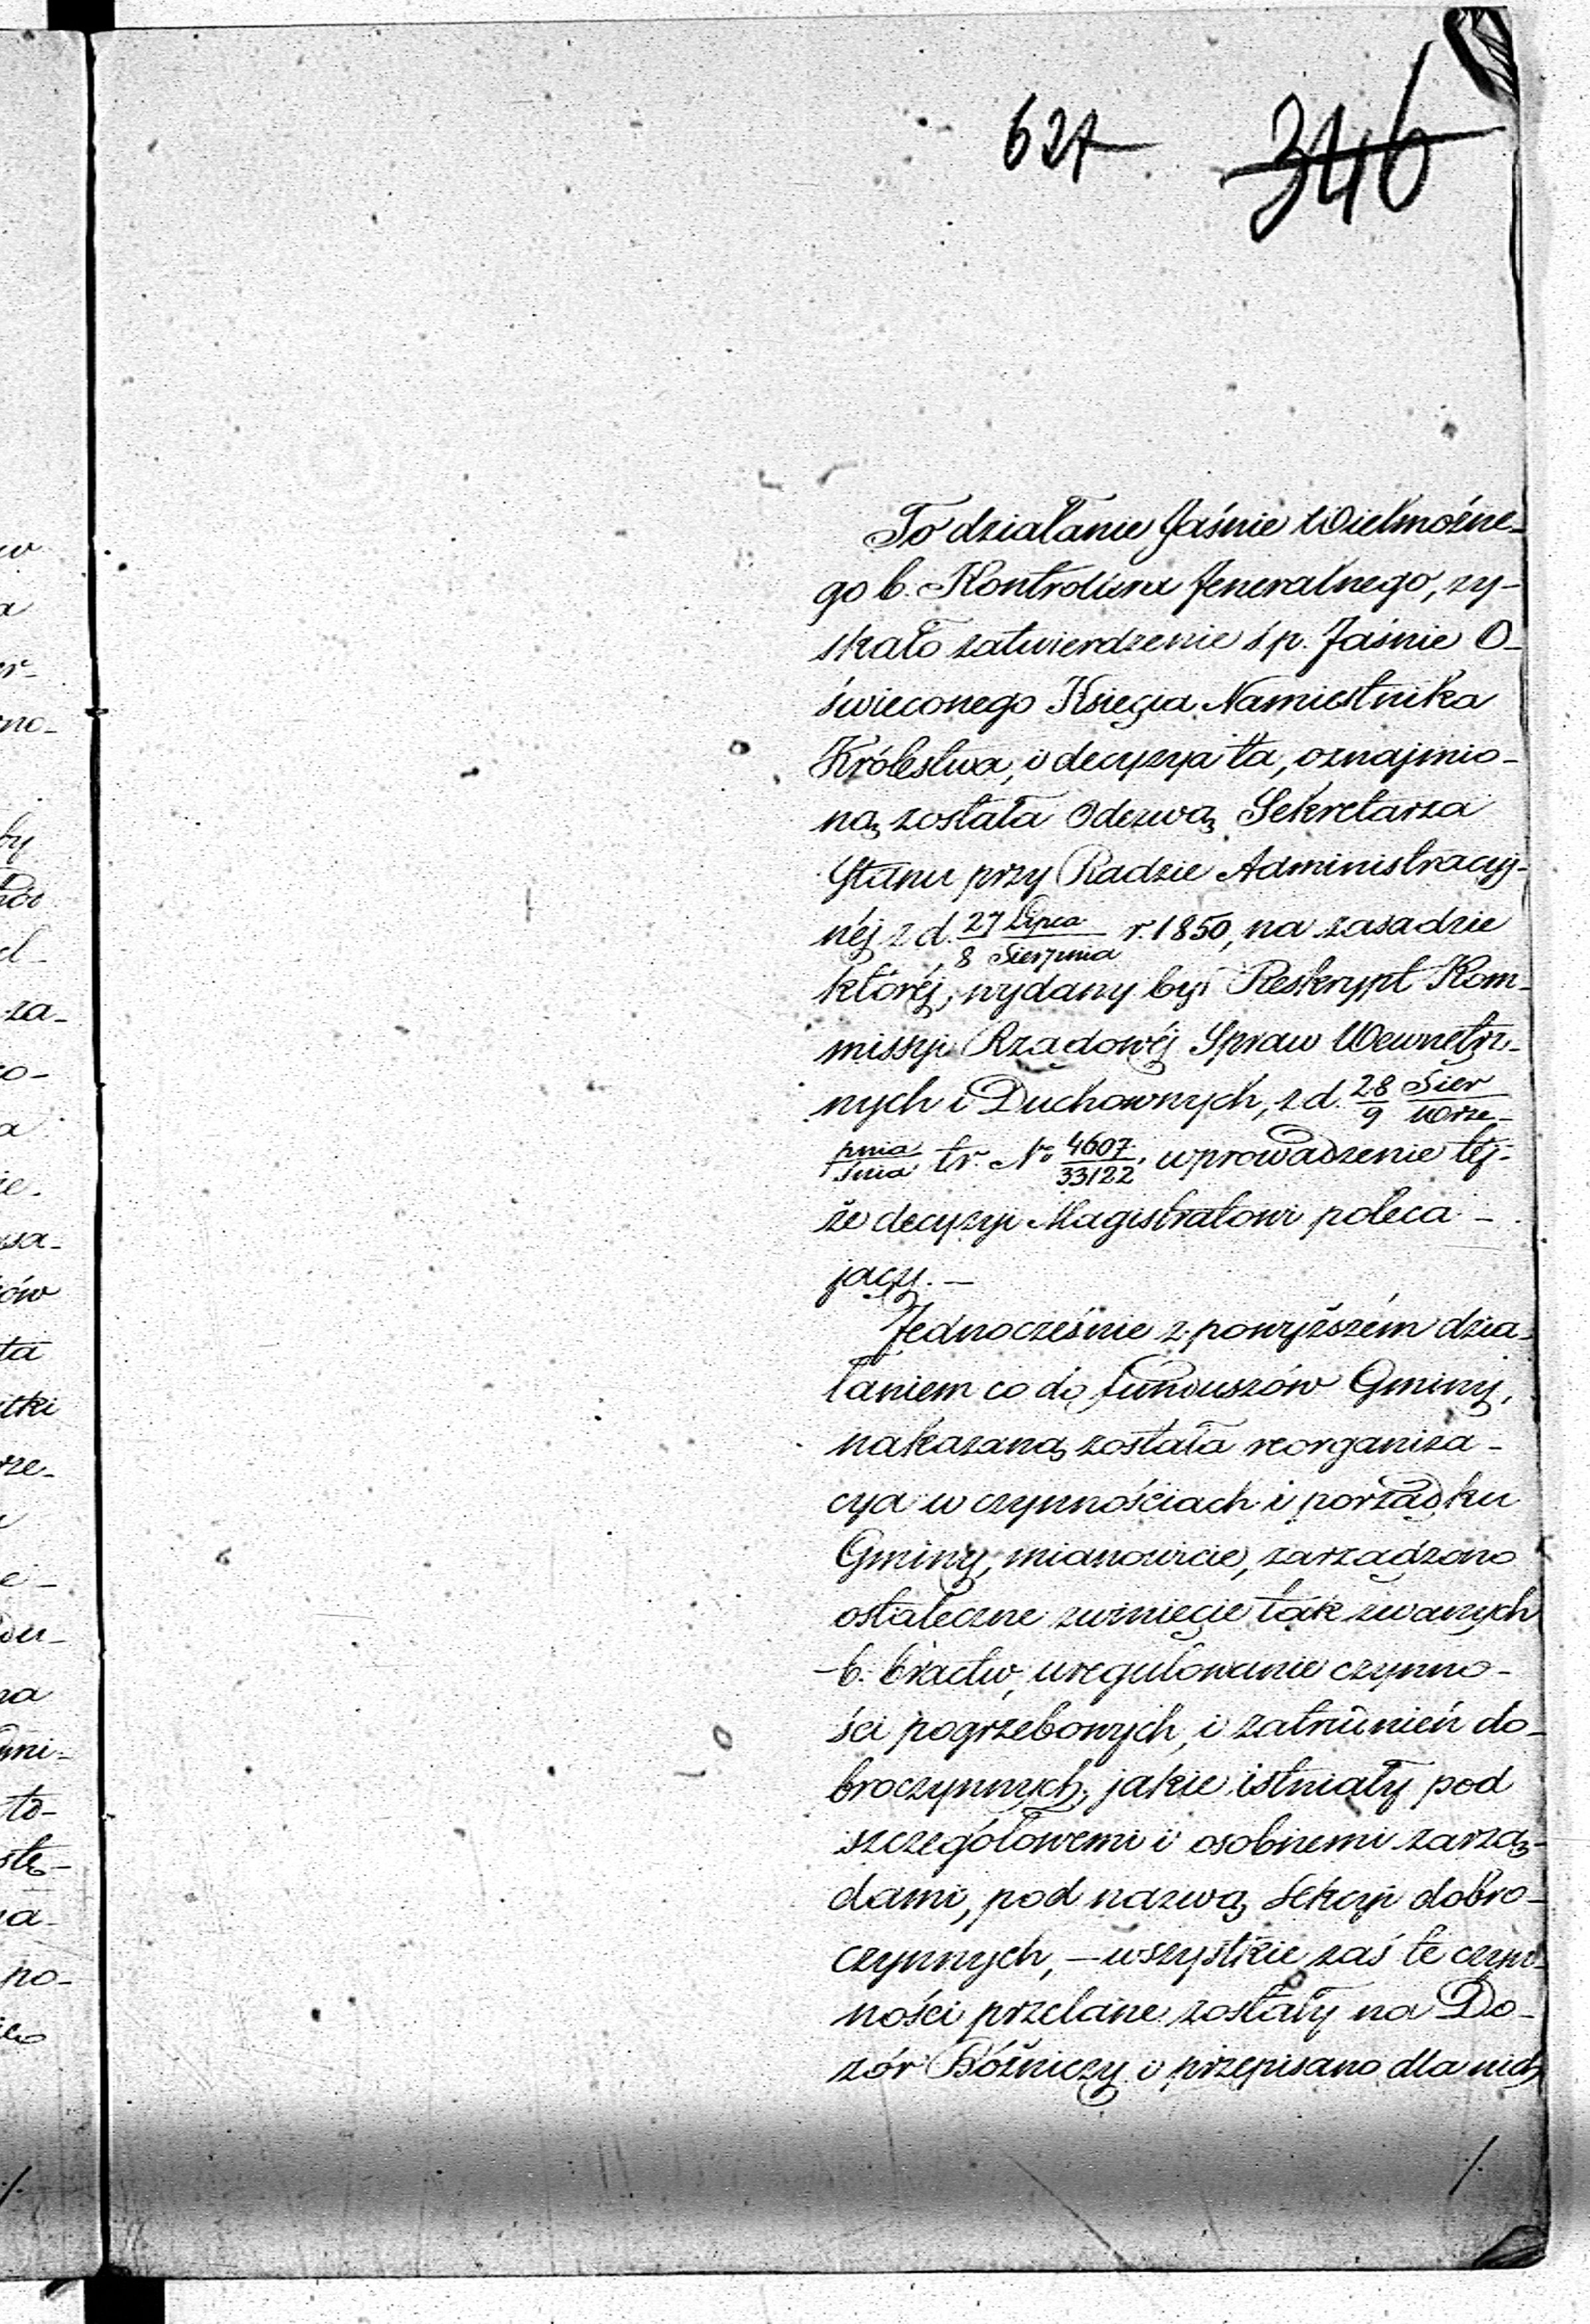 627 346
To działanie Jaśnie Wielmożne-
go b. Kontrollera Jeneralnego, zy-
skało zatwierdzenie ś.p. Jaśnie O-
świeconego Księcia Namiestnika
Królestwa, i decyzya ta, oznajmio-
ną została Odezwą Sekretarza
Stanu przy Radzie Administracyj-
néj z d. 27 Lipca / 8 Sierpnia r. 1850, na zasadzie
któréj, wydany był Reskrypt Kom-
missyi Rządowéj Spraw Wewnętrz-
nych i Duchownych, z d. 28 Sier / 9 Wrze-
pnia / śnia t.r. No 4607 / 33122, wprowadzenie téj-
że decyzyi Magistratowi poleca-
jący. —
Jednocześnie z powyższém dzia-
łaniem co do funduszów Gminy,
nakazaną została reorganiza-
cya w czynnościach i porządku
Gminy, mianowicie, zarządzono
ostateczne zwinięcie tak zwanych
b. bractw, uregulowanie czynno-
ści pogrzebowych, i zatrunień do-
broczynnych, jakie istniały pod
szczegółowemi i osobnemi zarzą-
dami, pod nazwą Sekcyi dobro-
czynnych, — wszystkie zaś te czyn-
ności przelane zostały na Do-
zór Bóżniczy i przepisano dla nich
./.